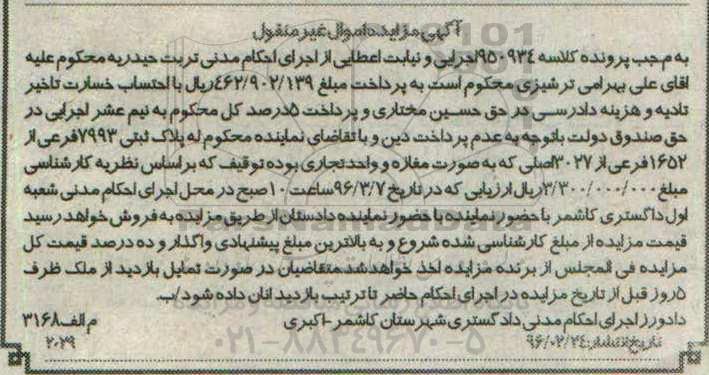 آگهی مزایده اموال غیر منقول
به موجب پرونده کلاسه ۹۵۰۹۳۴اجرایی و نیابت اعطایی از اجرای احکام مدنی تربت حیدریه محکوم علیه
اقای علی بهرامی ترشیزی محکوم است به پرداخت مبلغ ۴۶۲/۹۰۲/۱۳۹ریال با احتساب خسارت تاخیر
تادیه و هزینه دادرسی در حق حسین مختاری و پرداخت ۵درصد کل محکوم به نیم عشر اجرایی در
حق صندوق دولت باتوجه به عدم پرداخت دین و با تقاضای نماینده محکوم له پلاک ثبتی ۷۹۹۳فرعی از
۱۶۵۲فرعی از ۳۰۲۷اصلی که به صورت مغازه و واحد تجاری بوده توقیف که بر اساس نظریه کارشناسی
مبلغ ۳/۳۰۰/۰۰۰/۰۰۰ریال ارزیابی که در تاریخ ۹۶/۳/۷ساعت ۱۰صبح در محل اجرای احکام مدنی شعبه
اول داگستری کاشمر با حضور نماینده با حضور نماینده دادستان از طریق مزایده به فروش خواهد رسید
قیمت مزایده از مبلغ کارشناسی شده شروع و به بالاترین مبلغ پیشنهادی واگذار و ده درصد قیمت کل
مزایده فی المجلس از برنده مزایده اخذ خواهد شد متقاضیان در صورت تمایل بازدید از ملک ظرف
۵روز قبل از تاریخ مزایده در اجرای احکام حاضر تا ترتیب بازدید انان داده شود/ب.
دادورز اجرای احکام مدنی دادگستری شهرستان کاشمر-اکبری م الف۳۱۶۸
تاریخ انتشار:۹۶/۰۲/۲۴ ۲۰۲۹
ParsNamadData
۰۲۱-۸۸۳۴۹۶۷۰-۵